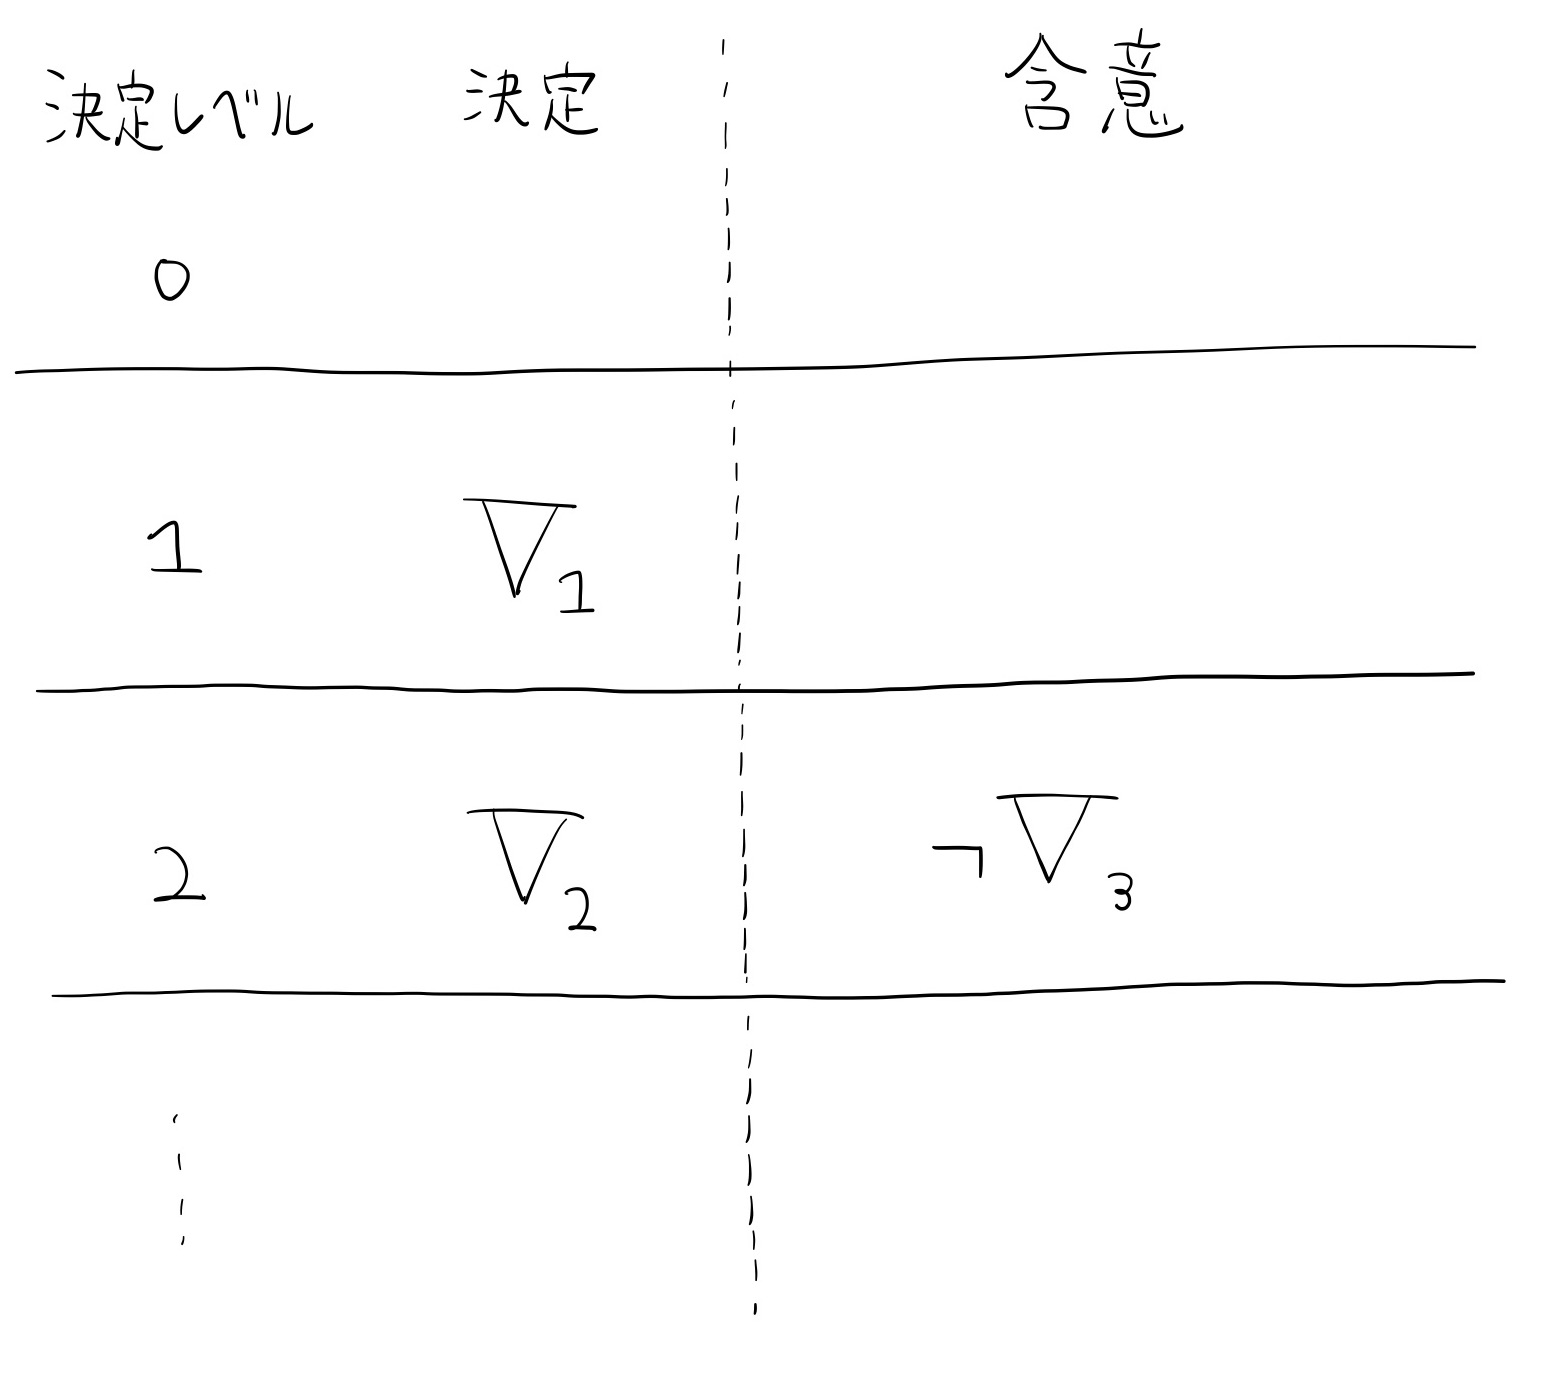 決定レベル 決定 含意
0
1 V₁
2 V₂ ¬V₃